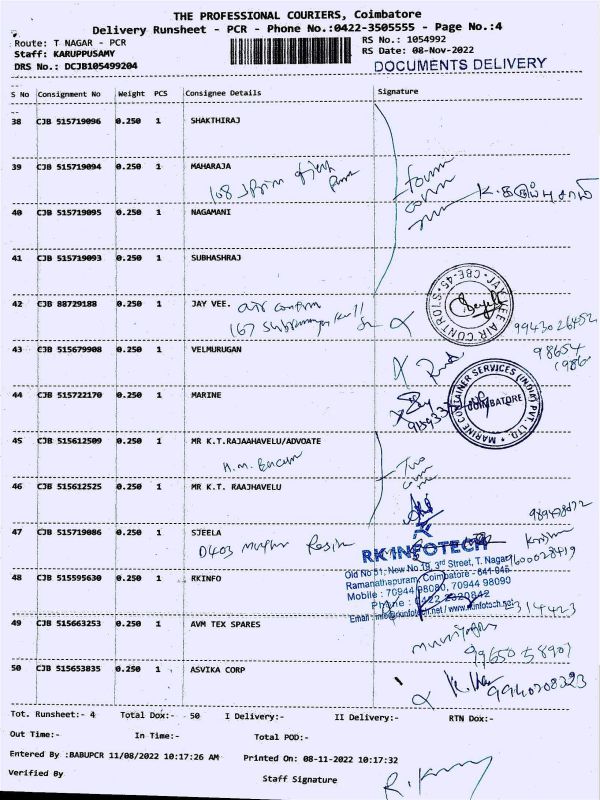 THE PROFESSIONAL COURIERS, Coimbatore
Delivery Runsheet - PCR - Phone No.:0422-3505555 - Page No.:4
Route: T NAGAR - PCR
RS No.: 1054992
Staff: KARUPPUSAMY
RS Date: 08-Nov-2022
DRS No.: DCJB105499204
DOCUMENTS DELIVERY
S No Consignment No Weight PCS Consignee Details Signature
38 CJB 515719096 0.250 1 SHAKTHIRAJ
39 CJB 515719094 0.250 1 MAHARAJA
108
40 CJB 515719095 0.250 1 NAGAMANI
41 CJB 515719093 0.250 1 SUBHASHRAJ
JAY VEE AIR CONTROLS CBE-45
42 CJB 88729188 0.250 1 JAY VEE. air
167
9943026452
43 CJB 515679908 0.250 1 VELMURUGAN
98654
44 CJB 515722170 0.250 1 MARINE
MARINE CONTAINER SERVICES (INDIA) PVT. LTD.
COIMBATORE
45 CJB 515612509 0.250 1 MR K.T.RAJAAHAVELU/ADVOATE
46 CJB 515612525 0.250 1 MR K.T. RAAJHAVELU
47 CJB 515719086 0.250 1 SJEELA
D403
9600028419
RK INFOTECH
Old No 51, New No 19, 3rd Street, T. Nagar
Ramanathapuram, Coimbatore - 641 045.
48 CJB 515595630 0.250 1 RKINFO
Mobile : 70944 98080, 70944 98090
Phone : 0422 2320842
Email : info@rkinfotech.net / www.rkinfotech.net
49 CJB 515663253 0.250 1 AVM TEX SPARES
9965058907
50 CJB 515653835 0.250 1 ASVIKA CORP
9940208223
Tot. Runsheet:- 4 Total Dox:- 50 I Delivery:- II Delivery:- RTN Dox:-
Out Time:- In Time:- Total POD:-
Entered By :BABUPCR 11/08/2022 10:17:26 AM Printed On: 08-11-2022 10:17:32
Verified By Staff Signature